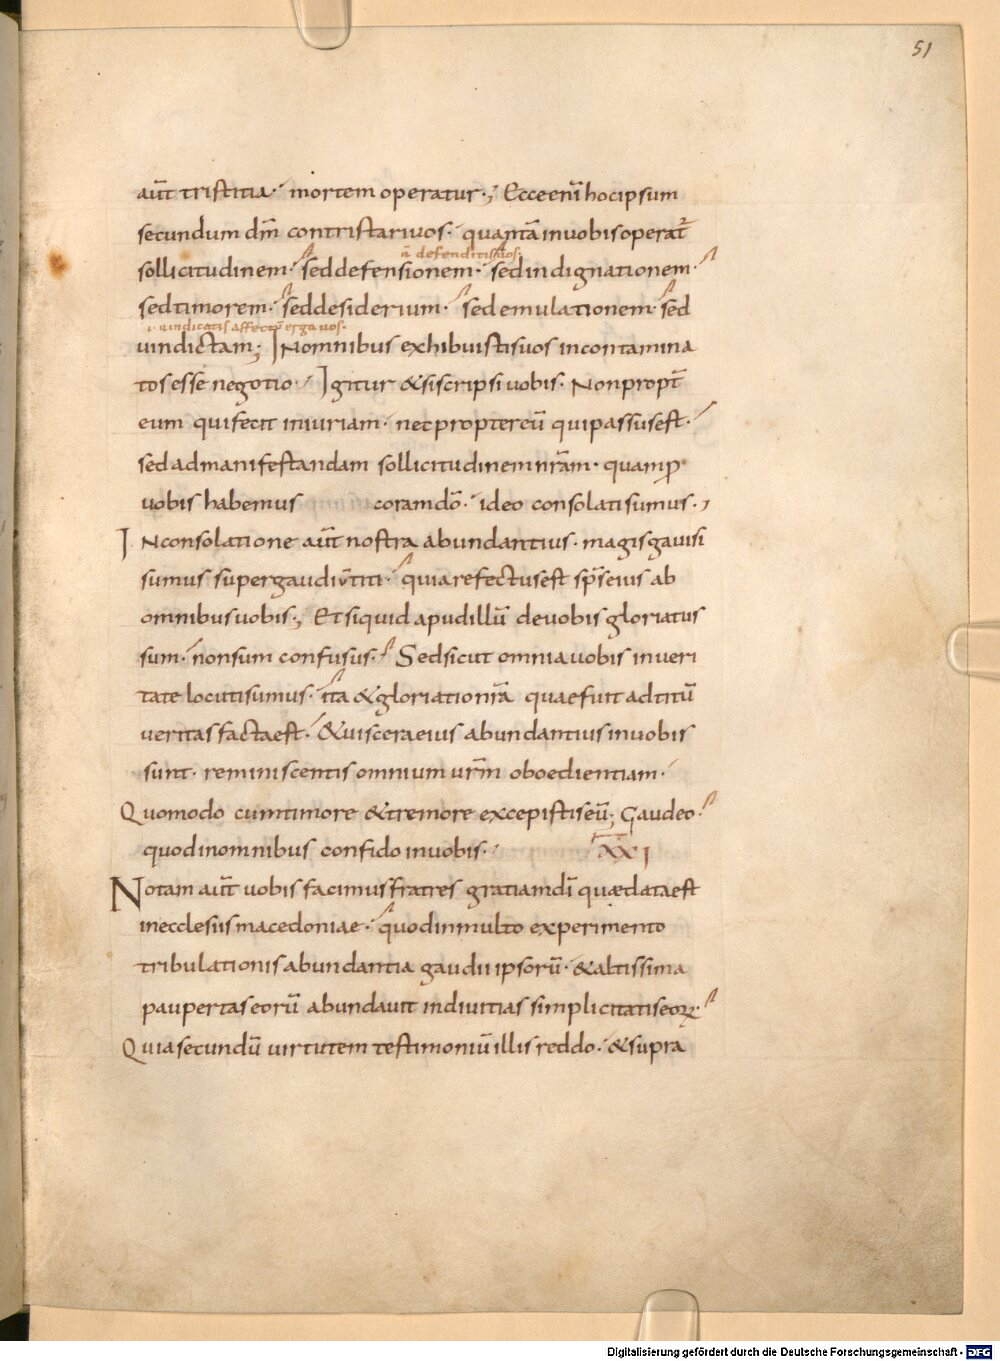 51
aut̄ tristitia· mortem operatur·; Ecce eni̅ hoc ipsum
secundum dm̅ contristari vos· quanta̅ in vobis operat᷑
n̅ defenditis vos·
sollicitudinem· sed defensionem· sed indignationem·
sed timorem· sed desiderium· sed emulationem· sed
i· uindicatis affectu̅ erga uos·
uindictam; In omnibus exhibuistis vos incontamina
tos esse negotio· Igitur & si scripsi vobis· Non propt̄
eum qui fecit iniuriam· nec propter eu̅ qui passus est·
sed ad manifestandam sollicitudinem nr̅am· quam ꝓ
vobis habemus coram do̅· ideo consolati sumus·,
In consolatione aut̄ nostra abundantius· magis gavisi
sumus super gaudiu̅ titi· quia refectus est sp̅s eius ab
omnibus vobis·; Et si quid apud illu̅ de vobis gloriatus
sum· non sum confusus· Sed sicut omnia vobis in veri
tate locuti sumus· ita & gloriatio nr̅a quae fuit ad titu̅
veritas facta est· & viscera eius abundantius in vobis
sunt· reminiscentis omnium vr̅m oboedientiam·
Quomodo cum timore & tremore excepistis eu̅; Gaudeo·
quod in omnibus confido in vobis· XXI
Notam aut̄ vobis facimus fratres gratiam di̅ quæ data est
in ecclesiis macedoniae· quod in multo experimento
tribulationis abundantia gaudii ipsoru̅· & altissima
paupertas eoru̅ abundavit in divitias simplicitatis eoꝝ·
Quia secundu̅ virtutem testimoniu̅ illis reddo· & supra
Digitalisierung gefördert durch die Deutsche Forschungsgemeinschaft - DFG